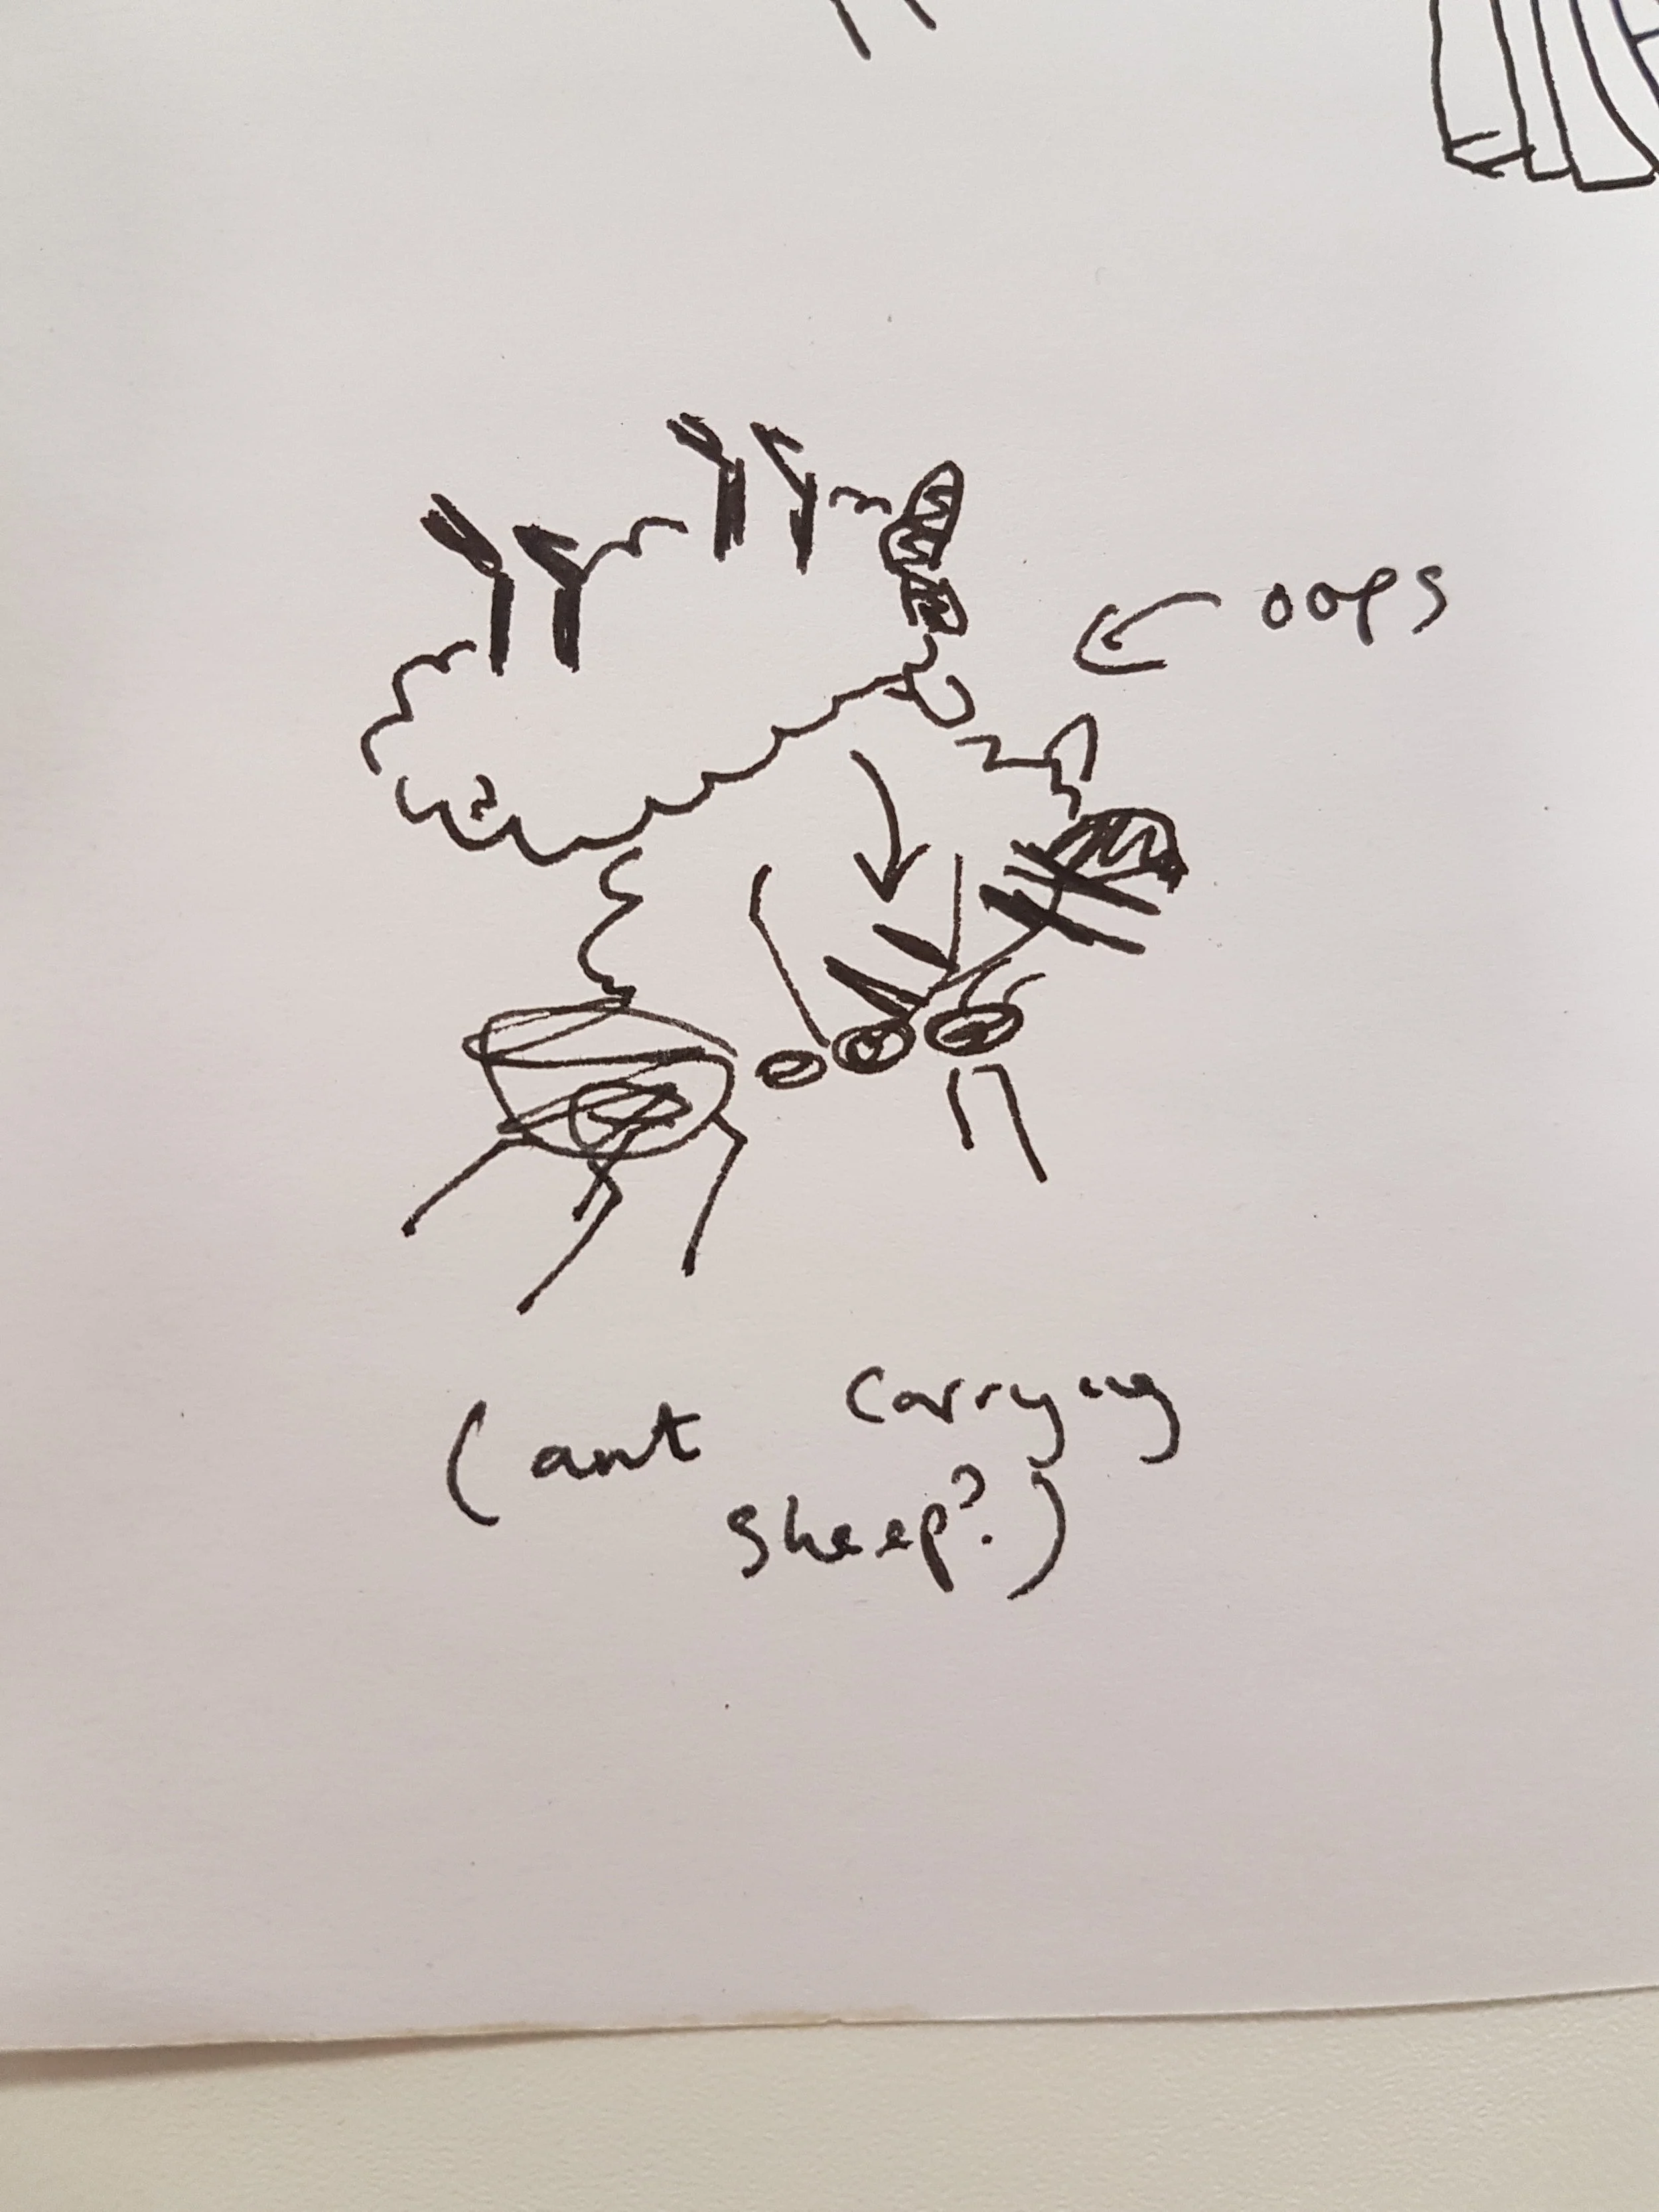 oops
(ant carrying
sheep?)